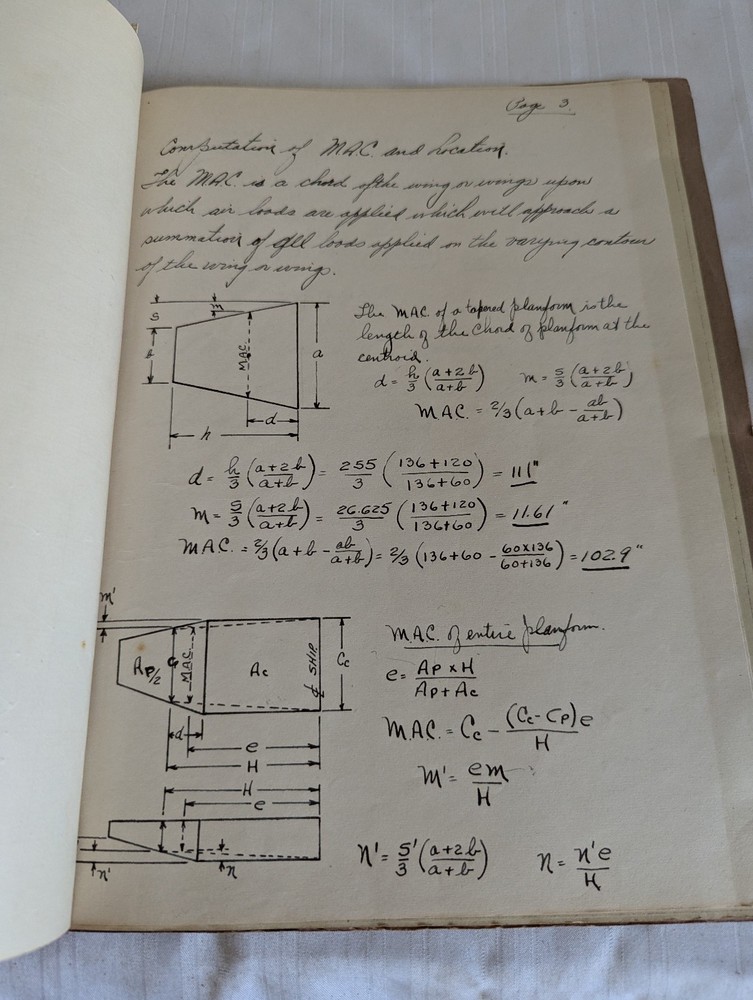 Page 3.
Computation of M.A.C. and Location.
The M.A.C. is a chord of the wing or wings upon
which air loads are applied which will approach a
summation of all loads applied on the varying contour
of the wing or wings.
s
m
b
MAC.
a
d
h
The M.A.C. of a tapered planform is the
length of the chord of planform at the
centroid.
d = h/3 (a+2b/a+b)   m = s/3 (a+2b/a+b)
M.A.C. = 2/3 (a+b - ab/a+b)
d = h/3 (a+2b/a+b) = 255/3 (136+120/136+60) = 111"
m = s/3 (a+2b/a+b) = 26.625/3 (136+120/136+60) = 11.61"
M.A.C. = 2/3 (a+b - ab/a+b) = 2/3 (136+60 - 60x136/60+136) = 102.9"
m'
Ap/2
MAC.
Ac
℄ SHIP
Cc
d
e
H
M.A.C. of entire planform.
e = Ap x H/Ap + Ac
M.A.C. = Cc - (Cc - Cp)e/H
m' = em/H
H
e
n'
n
n' = s'/3 (a+2b/a+b)   n = n'e/H